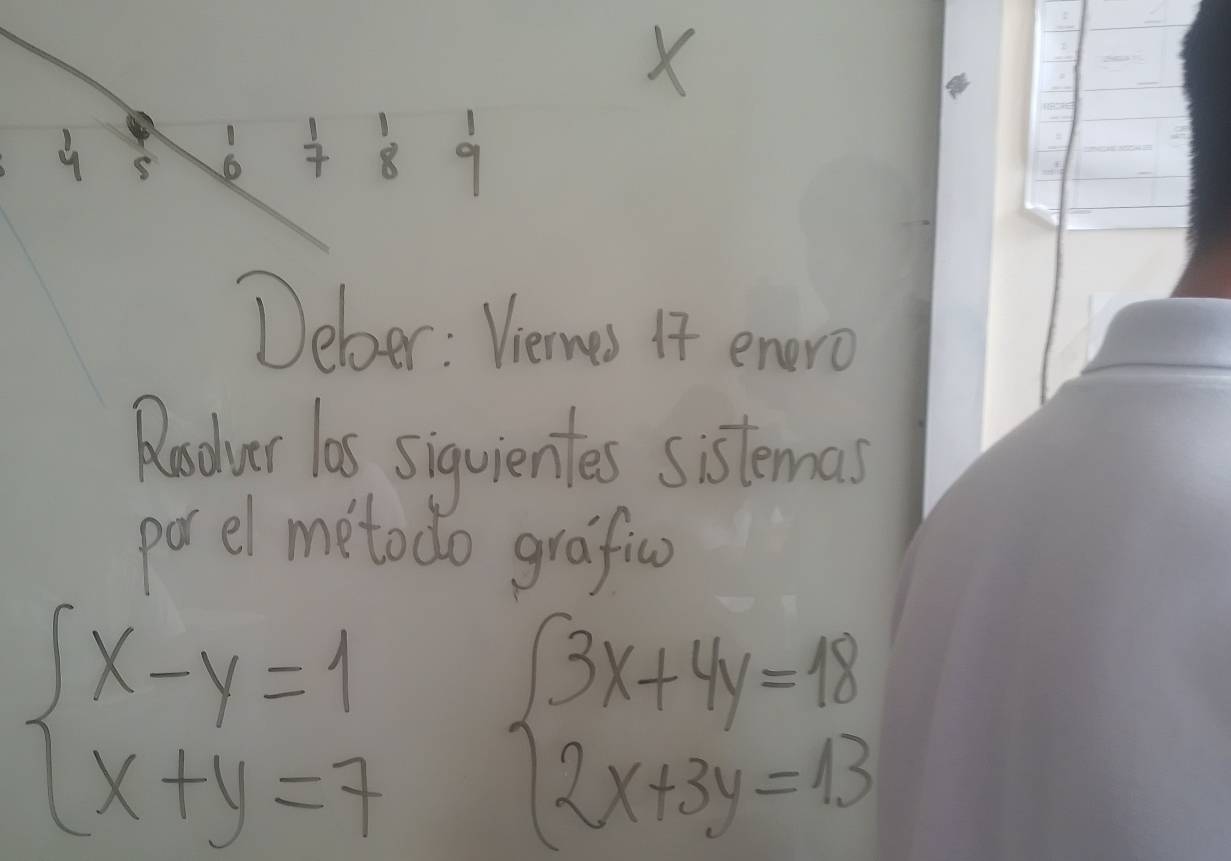 X
4 5 6 7 8 9
Deber: Viernes 17 enero
Resolver los siguientes sistemas
por el método gráfico
x - y = 1
x + y = 7
3x + 4y = 18
2x + 3y = 13